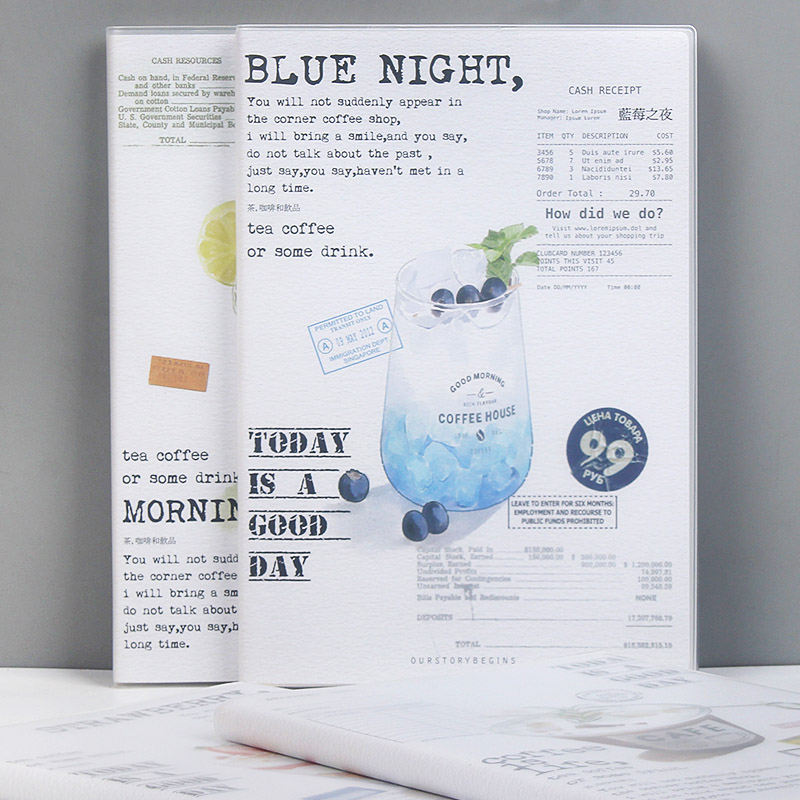 CASH RESOURCES
Cash on hand, in Federal Reser
and other banks
Demand loans secured by wareh
on cotton
Government Cotton Loans Payab
U. S. Government Securities
State, County and Municipal Bo
TOTAL
tea coffee
or some drink
MORNIN
茶.咖啡和飲品
You will not sudd
the corner coffee
i will bring a sm
do not talk about
just say,you say,h
long time.
BLUE NIGHT,
You will not suddenly appear in
the corner coffee shop,
i will bring a smile,and you say,
do not talk about the past ,
just say,you say,haven't met in a
long time.
茶.咖啡和飲品
tea coffee
or some drink.
CASH RECEIPT
Shop Name: Lorem Ipsum
Manager: Ipsum Lorem
藍莓之夜
ITEM QTY DESCRIPTION COST
3456 5 Duis aute irure $5.60
5678 7 Ut enim ad $2.95
6789 3 Nacididuntei $13.65
7890 1 Laboris nisi $7.80
Order Total : 29.70
How did we do?
Visit www.loremipsum.dol and
tell us about your shopping trip
CLUBCARD NUMBER 123456
POINTS THIS VISIT 45
TOTAL POINTS 167
Date DD/MM/YYYY Time 00:00
PERMITTED TO LAND
TRANSIT ONLY
A 09 MAY 2012 A
IMMIGRATION DEPT
SINGAPORE
GOOD MORNING
RICH FLAVOUR
COFFEE HOUSE
ЦЕНА ТОВАРА
99
РУБ
TODAY
IS A
GOOD
DAY
LEAVE TO ENTER FOR SIX MONTHS:
EMPLOYMENT AND RECOURSE TO
PUBLIC FUNDS PROHIBITED
Capital Stock, Paid in $150,000.00
Capital Stock, Earned 150,000.00 $ 300,000.00
Surplus, Earned 900,000.00 $ 1,200,000.00
Undivided Profits 74,997.81
Reserved for Contingencies 100,000.00
Unearned Interest
Bills Payable and Rediscounts NONE
DEPOSITS 17,207,766.79
TOTAL
OURSTORYBEGINS
STRAWBERRY
GOOD
DAY
CAFE
Coffee